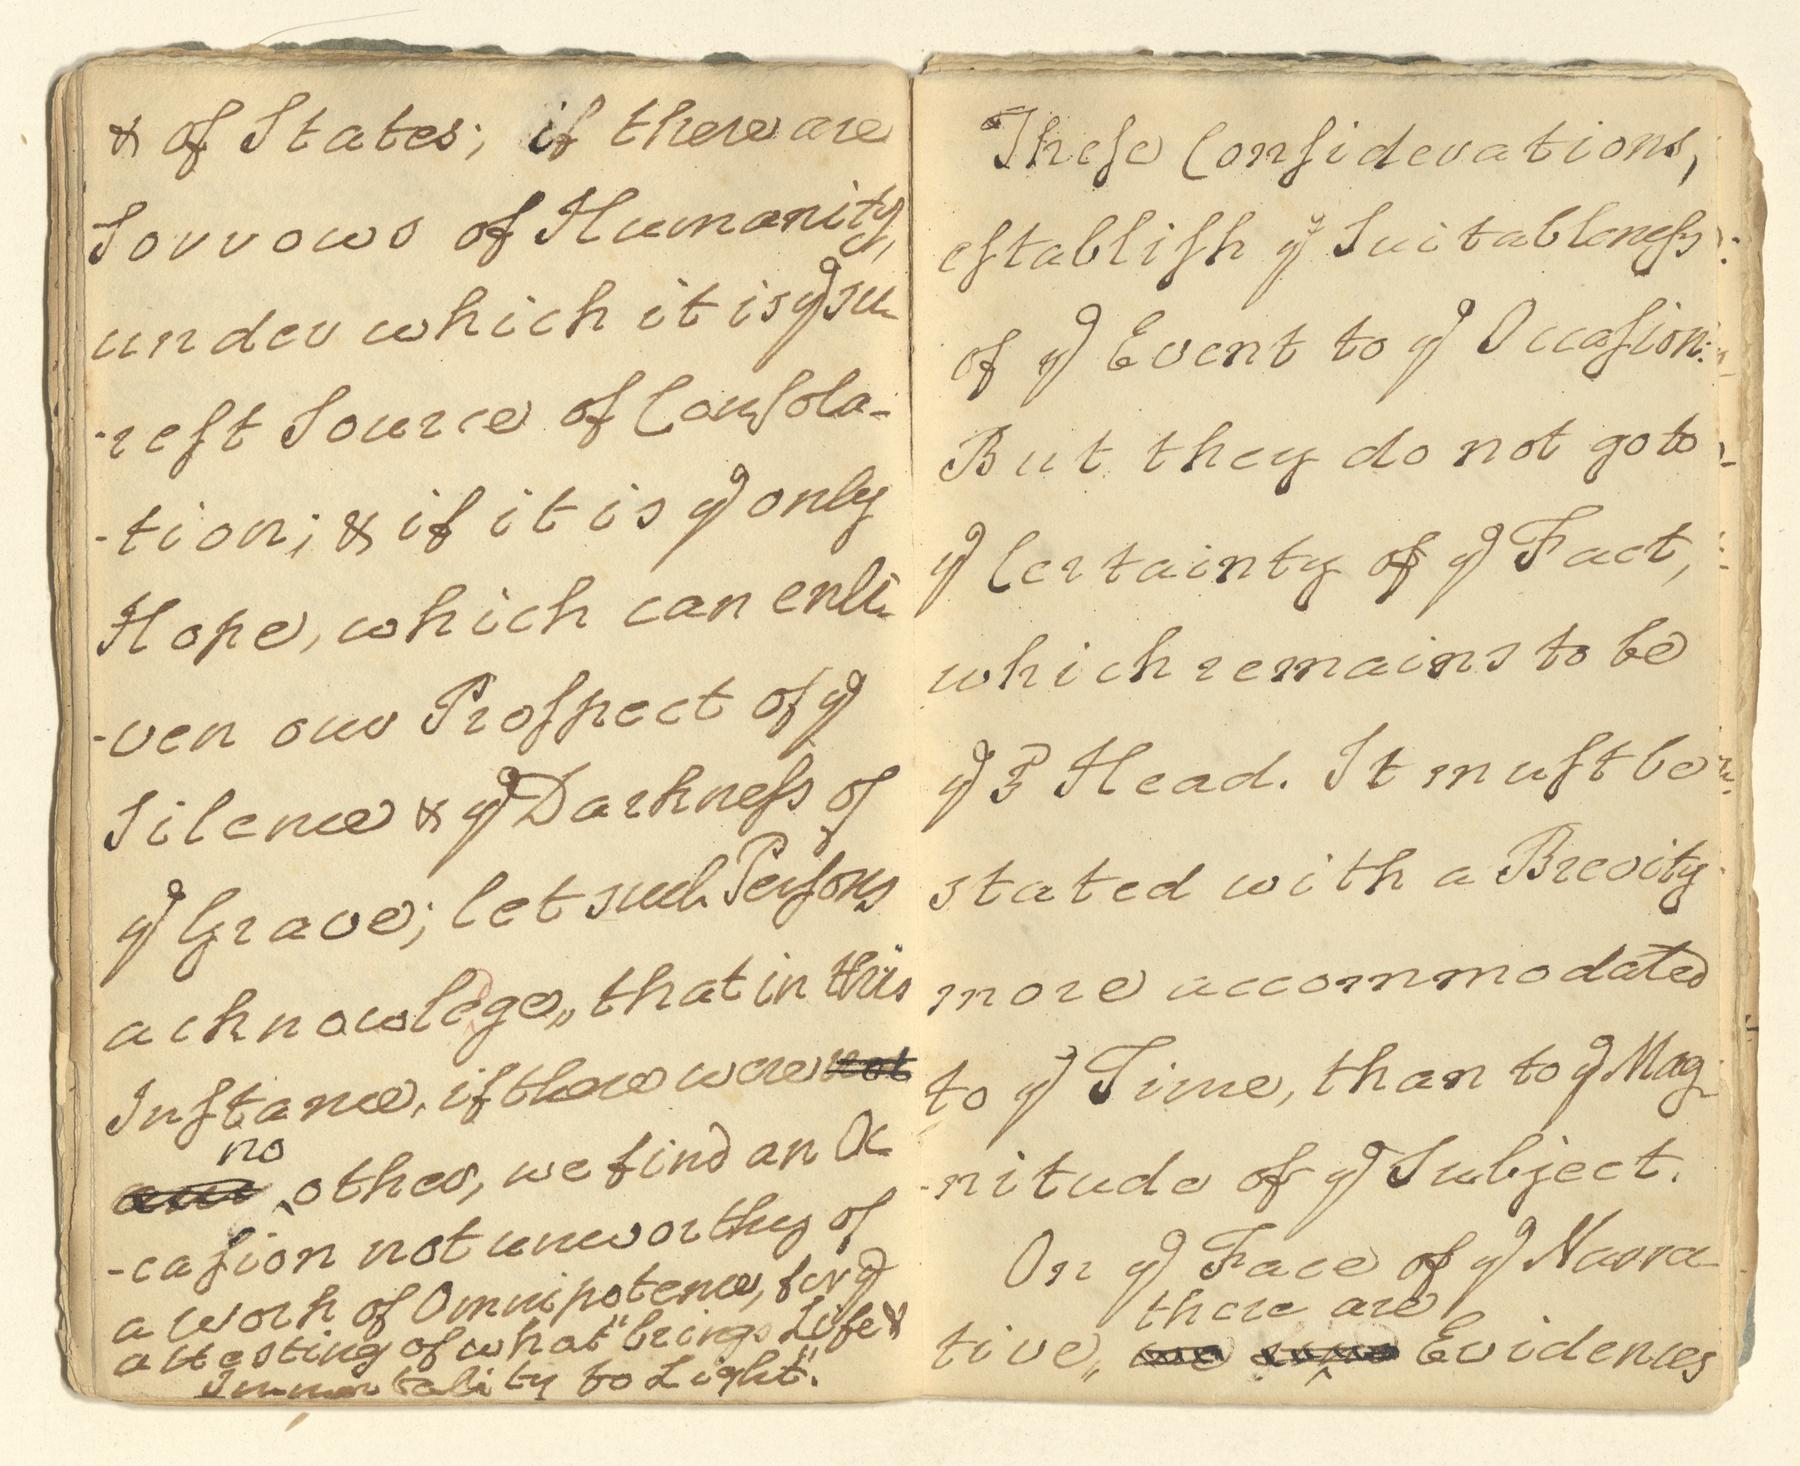 & of States; if there are
Sorrows of Humanity,
under which it is yᵉ su-
-reſt Source of Conſola-
-tion; & if it is yᵉ only
Hope, which can enli-
-ven our Proſpect of yᵉ
Silence & yᵉ Darkneſs of
yᵉ Grave; let such Perſons
acknowlege,, that in this
Inſtance, if there were not
no
any other, we find an Oc-
-caſion not unworthy of
a Work of Omnipotence, for yᵉ
attesting of what "brings Life &
Immortality to Light".
Theſe Conſiderations,
eſtabliſh yᵉ Suitableneſs
of yᵉ Event to yᵉ Occaſion:
But they do not go to
yᵉ Certainty of yᵉ Fact,
which remains to be
yᵉ 3 Head. It muſt be
stated with a Brevity
more accommodated
to yᵉ Time, than to yᵉ Mag-
-nitude of yᵉ Subject.
On yᵉ Face of yᵉ Narra-
there are
tive,, Evidences